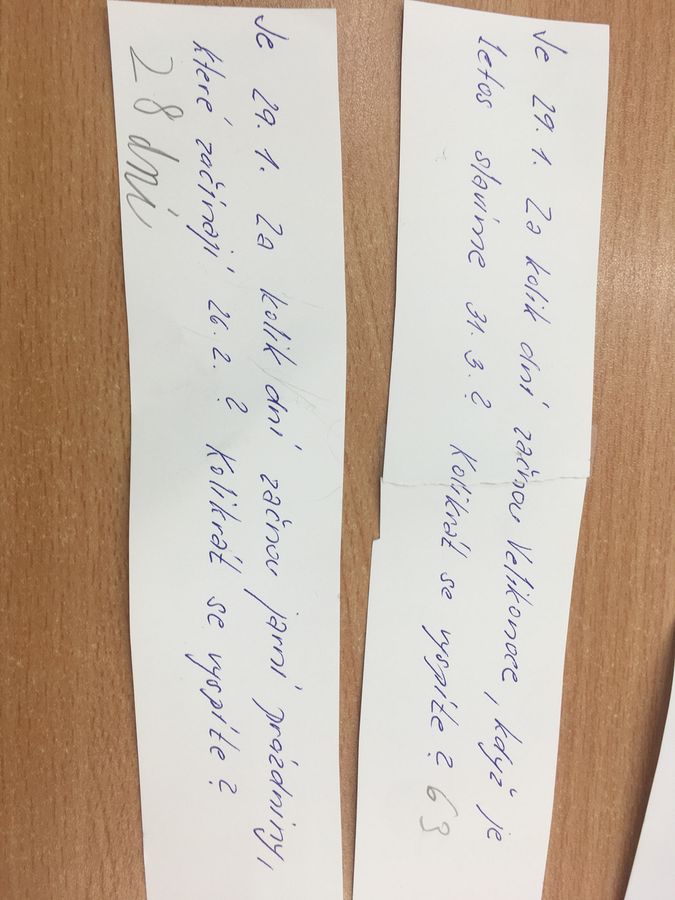 Je 29.1. Za kolik dní začnou Velikonoce, když je
letos slavíme 31.3.? Kolikrát se vyspíte? 63
Je 29.1. Za kolik dní začnou jarní prázdniny,
které začínají 26.2.? Kolikrát se vyspíte?
28 dní